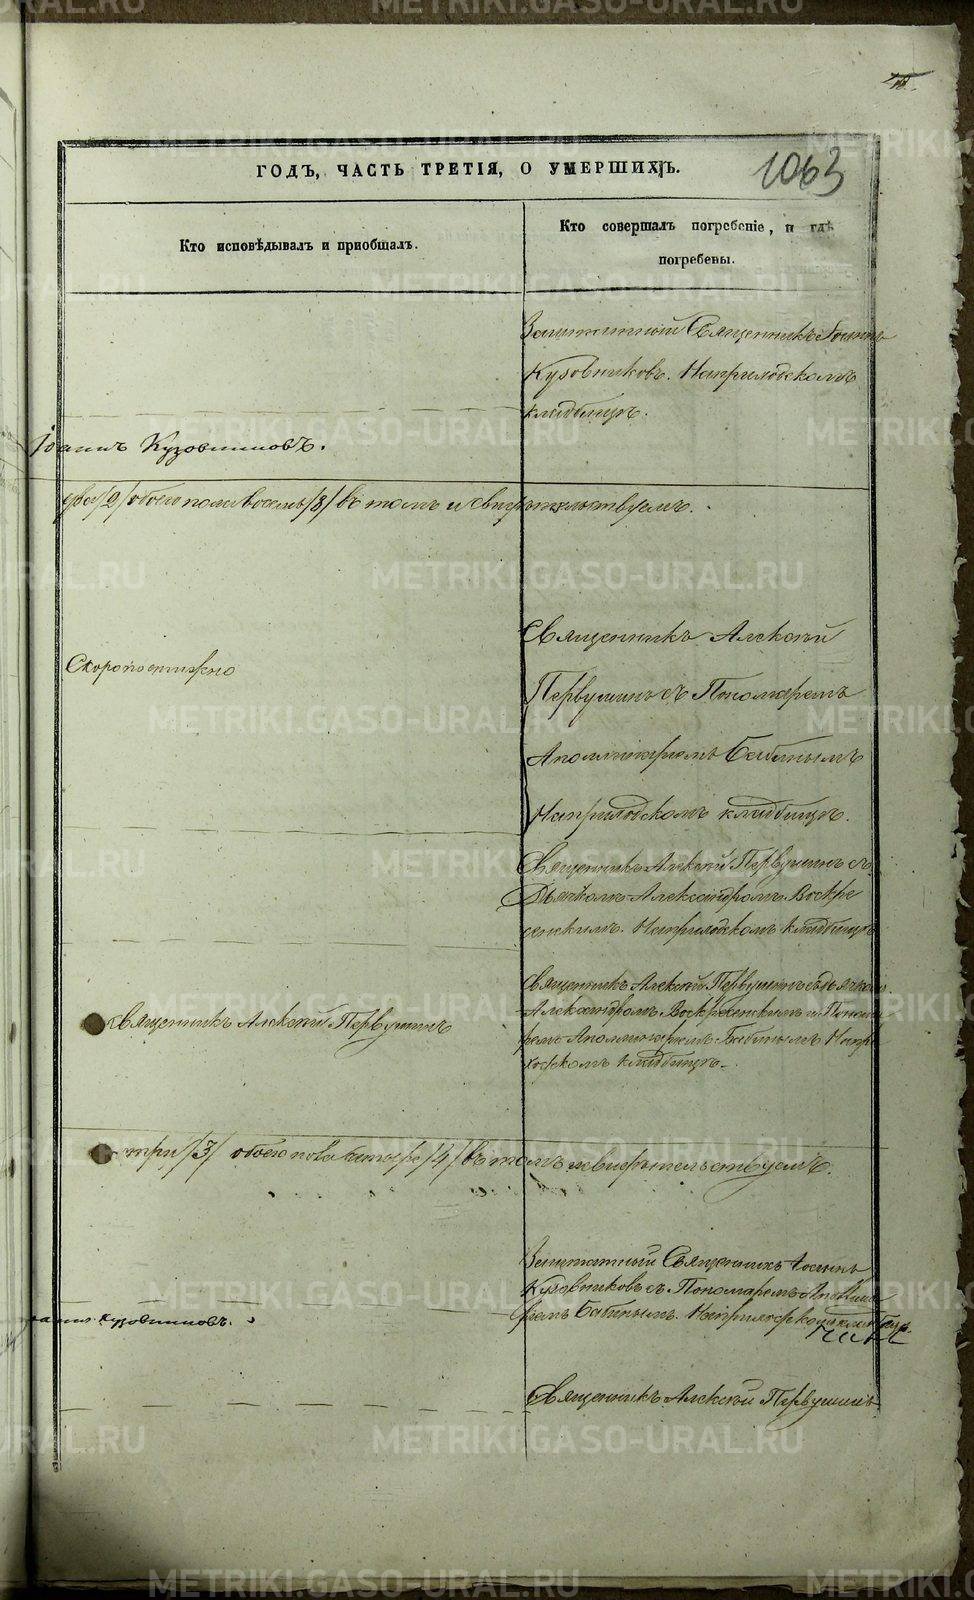 1063
ГОДЪ, ЧАСТЬ ТРЕТІЯ, О УМЕРШИХЪ.
Кто исповѣдывалъ и приобщалъ.
Кто совершалъ погребеніе, и гдѣ
погребены.
Заштатный Священникъ Іоаннъ
Кузовниковъ. Наприходскомъ
кладбищѣ.
Іоаннъ Кузовниковъ.
два /2/ обоего пола восемь /8/ въ томъ и свидѣтельствуемъ.
Скоропостижно
Священникъ Алексѣй
Первушинъ съ Пономаремъ
Аполлинаріемъ Бабинымъ
Наприходскомъ кладбищѣ.
Священникъ Алексѣй Первушинъ съ
Дьячкомъ Александромъ Воскре
сенскимъ. Наприходскомъ кладбищѣ
Священникъ Алексѣй Первушинъ
Священникъ Алексѣй Первушинъ съ дьячкомъ
Александромъ Воскресенскимъ и Понома
ремъ Аполлинаріемъ Бабинымъ Напри
ходскомъ кладбищѣ.
три /3/ обоего пола четыре /4/ въ томъ и свидѣтельствуемъ.
Заштатный Священникъ Іоаннъ
Кузовниковъ съ Пономаремъ Аполлина
ріемъ Бабинымъ. Наприходскомъ кладби
щѣ
Кузовниковъ.
Священникъ Алексѣй Первушинъ
METRIKI.GASO-URAL.RU